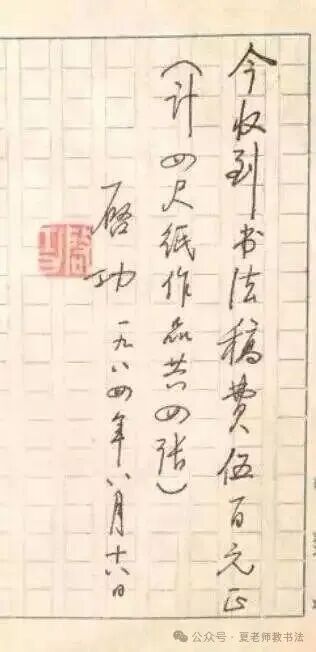 今收到书法稿费伍百元正
（计四尺纸作品共四张）
启功 一九八四年八月十六日
启功
公众号·夏老师教书法